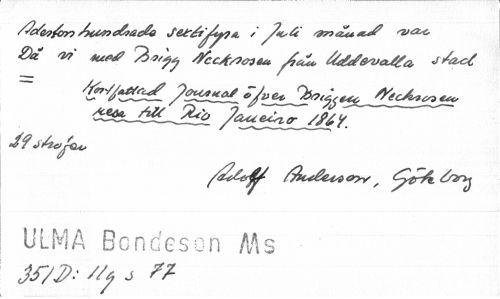 Adertonhundrade sextifyra i Juli månad var
Då vi med Brigg Neckrosen från Uddevalla stad
=
Kortfattad Journal öfver Briggen Neckrosen
resa till Rio Janeiro 1864.
29 strofer
Adolf Anderson, Göteborg
ULMA Bondeson Ms
351D: 11g s 77